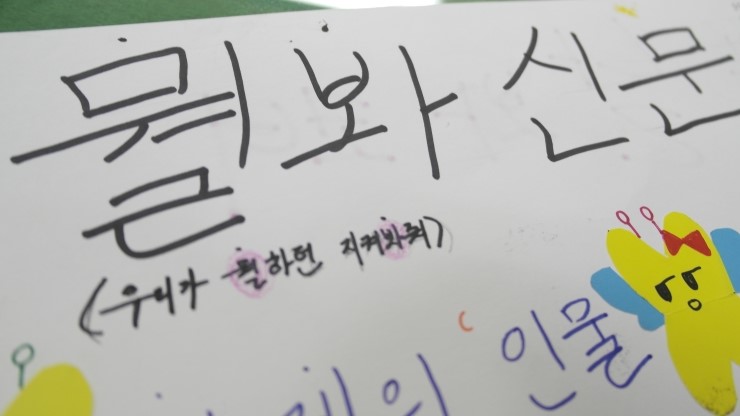 뭘봐 신문
(우리가 뭘하던 지켜봐줘)
제의 인물